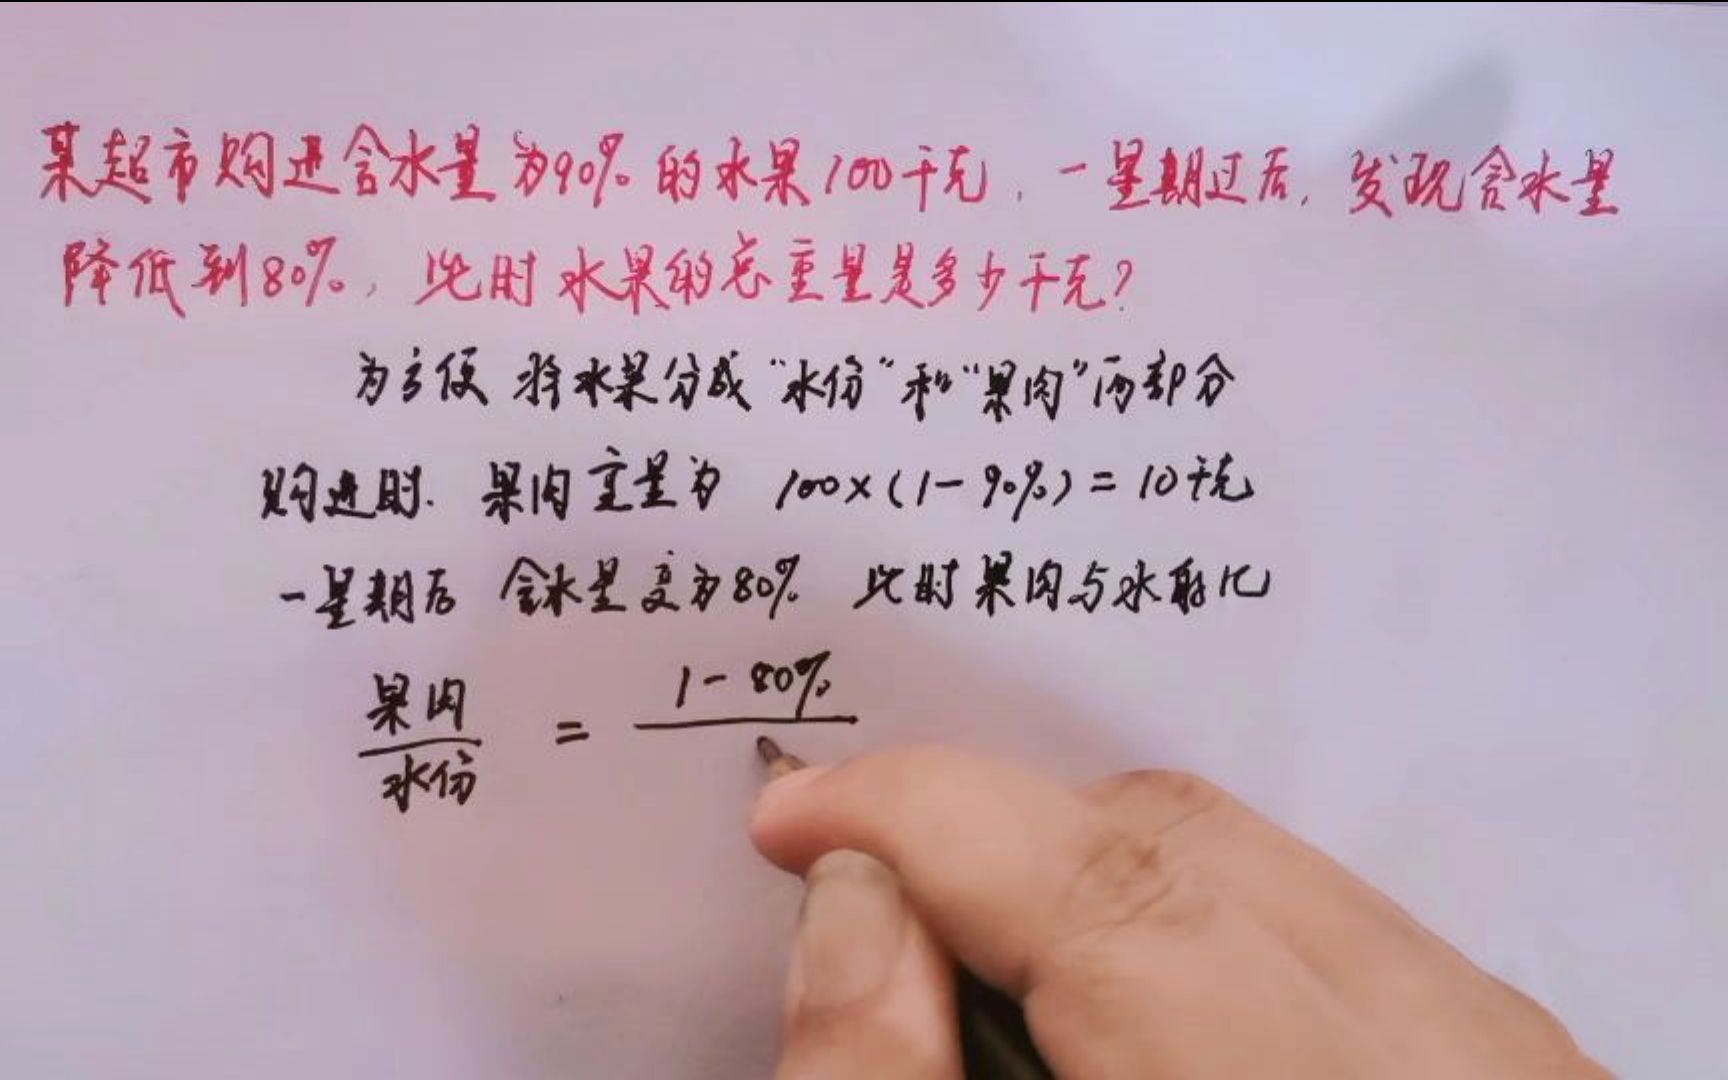 某超市购进含水量为90%的水果100千克,一星期过后,发现含水量
降低到80%,此时水果的总重量是多少千克?
为方便 将水果分成“水份”和“果肉”两部分
购进时. 果肉重量为 100×(1-90%)=10千克
一星期后 含水量变为80% 此时果肉与水的比
果肉/水份 = 1-80%/